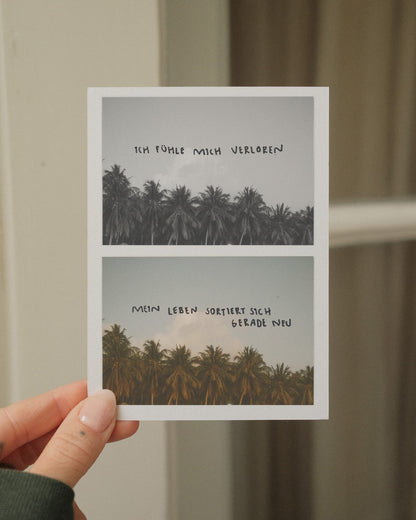 ICH FÜHLE MICH VERLOREN
MEIN LEBEN SORTIERT SICH
GERADE NEU